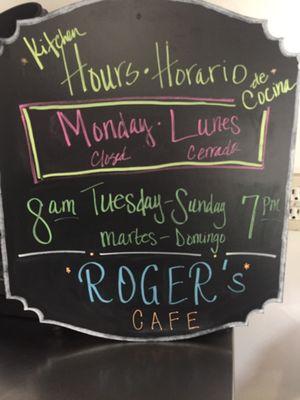 Kitchen
Hours · Horario de Cocina
Monday · Lunes
Closed Cerrado
8am Tuesday - Sunday 7pm
Martes - Domingo
ROGER's
CAFE